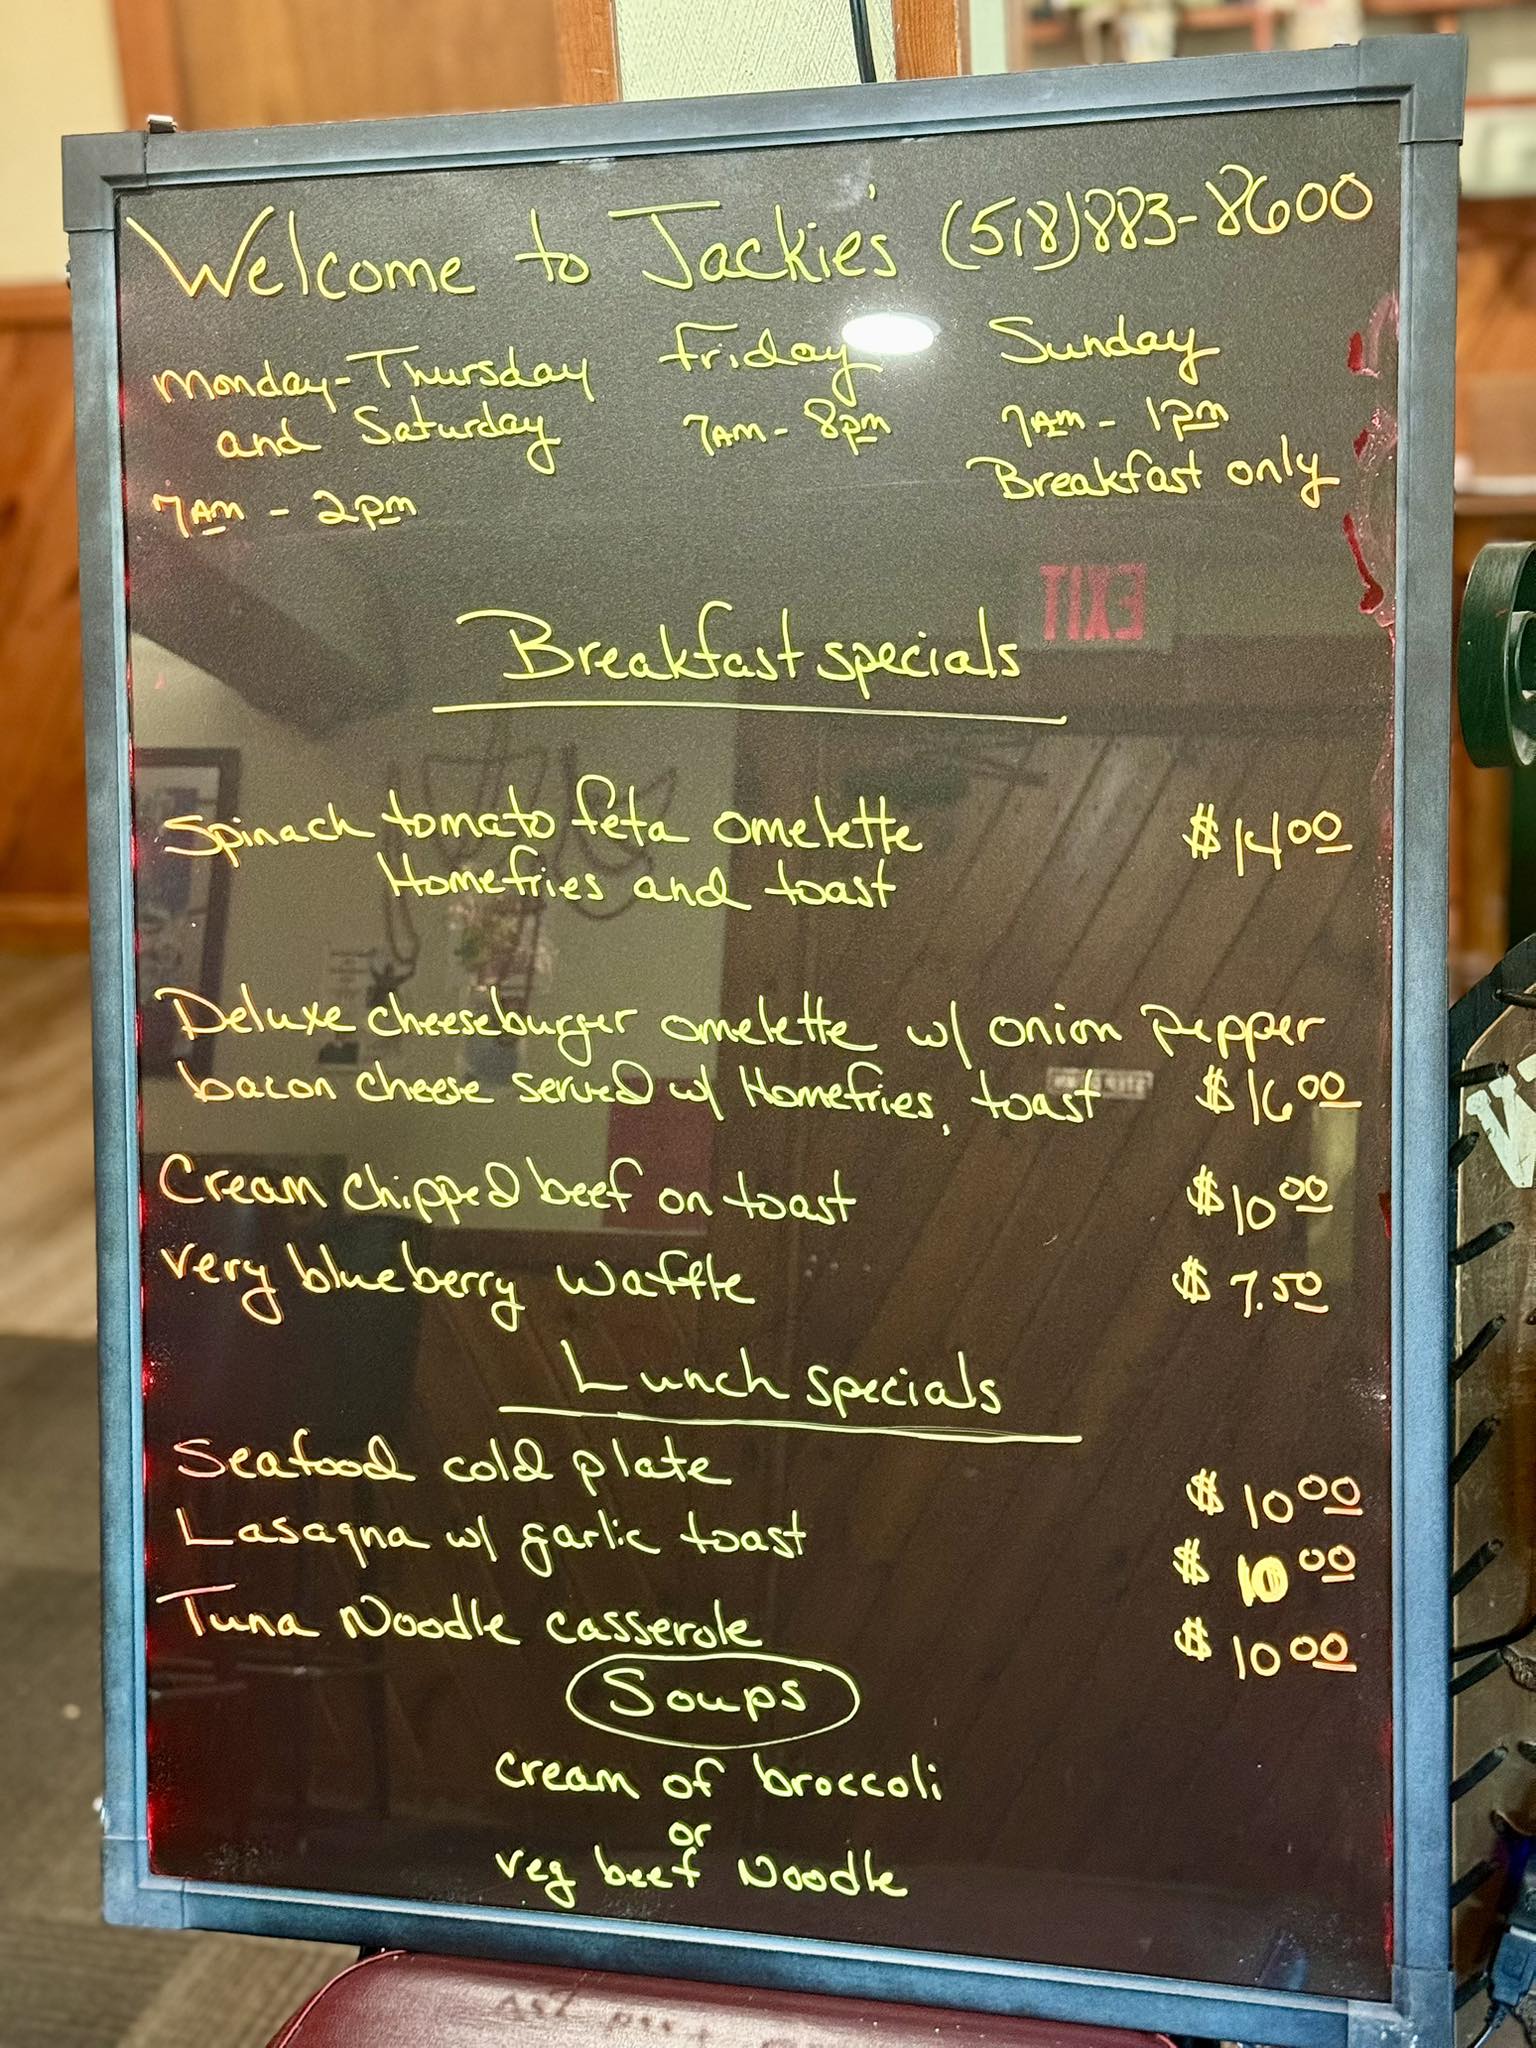 Welcome to Jackie's (518)883-8600
Monday-Thursday
and Saturday
7AM - 2pm
Friday
7AM - 8pm
Sunday
7AM - 1pm
Breakfast only
EXIT
Breakfast specials
Spinach tomato feta omelette $14.00
Homefries and toast
Deluxe cheeseburger omelette w/ onion pepper
bacon cheese served w/ Homefries, toast $16.00
Cream chipped beef on toast $10.00
very blueberry waffle $7.50
Lunch specials
Seafood cold plate $10.00
Lasagna w/ garlic toast $10.00
Tuna Noodle casserole $10.00
Soups
cream of broccoli
or
veg beef Noodle